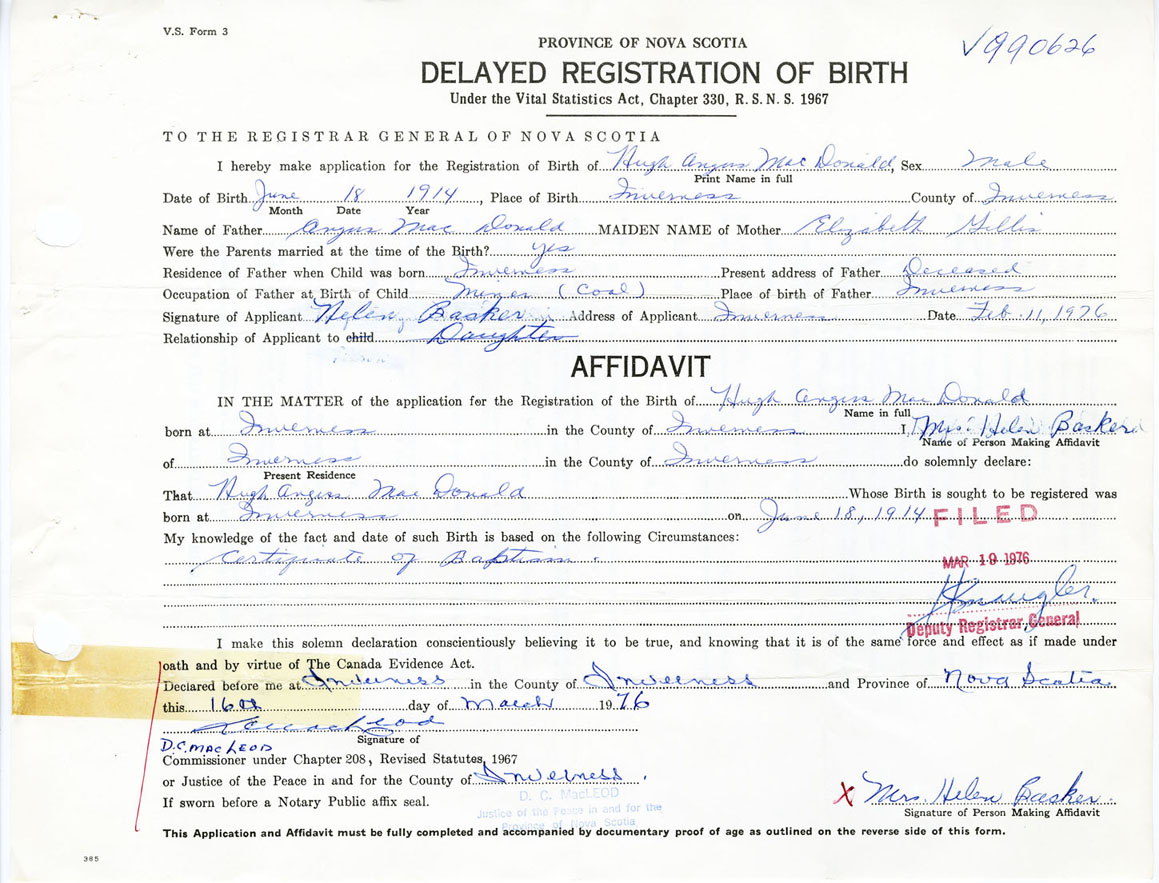 V.S. Form 3
√990626
PROVINCE OF NOVA SCOTIA
DELAYED REGISTRATION OF BIRTH
Under the Vital Statistics Act, Chapter 330, R. S. N. S. 1967
TO THE REGISTRAR GENERAL OF NOVA SCOTIA
I hereby make application for the Registration of Birth of Hugh Angus Mac Donald, Sex Male
Print Name in full
Date of Birth June 18 1914, Place of Birth Inverness County of Inverness
Month Date Year
Name of Father Angus Mac Donald MAIDEN NAME of Mother Elizabeth Gillis
Were the Parents married at the time of the Birth? Yes
Residence of Father when Child was born Inverness Present address of Father Deceased
Occupation of Father at Birth of Child Miner (Coal) Place of birth of Father Inverness
Signature of Applicant Helen Basker Address of Applicant Inverness Date Feb. 11, 1976
Relationship of Applicant to child Daughter
AFFIDAVIT
IN THE MATTER of the application for the Registration of the Birth of Hugh Angus Mac Donald
Name in full
born at Inverness in the County of Inverness I, Mrs. Helen Basker
Name of Person Making Affidavit
of Inverness in the County of Inverness do solemnly declare:
Present Residence
That Hugh Angus Mac Donald Whose Birth is sought to be registered was
born at Inverness on June 18, 1914 FILED
My knowledge of the fact and date of such Birth is based on the following Circumstances:
Certificate of Baptism.
MAR 19 1976
Deputy Registrar General
I make this solemn declaration conscientiously believing it to be true, and knowing that it is of the same force and effect as if made under
oath and by virtue of The Canada Evidence Act.
Declared before me at Inverness in the County of Inverness and Province of Nova Scotia
this 16th day of March 1976
D C MacLeod
Signature of
D.C. MacLEOD
Commissioner under Chapter 208, Revised Statutes, 1967
or Justice of the Peace in and for the County of Inverness.
D. C. MacLEOD
If sworn before a Notary Public affix seal.
Justice of the Peace in and for the
Province of Nova Scotia
X Mrs Helen Basker
Signature of Person Making Affidavit
This Application and Affidavit must be fully completed and accompanied by documentary proof of age as outlined on the reverse side of this form.
385